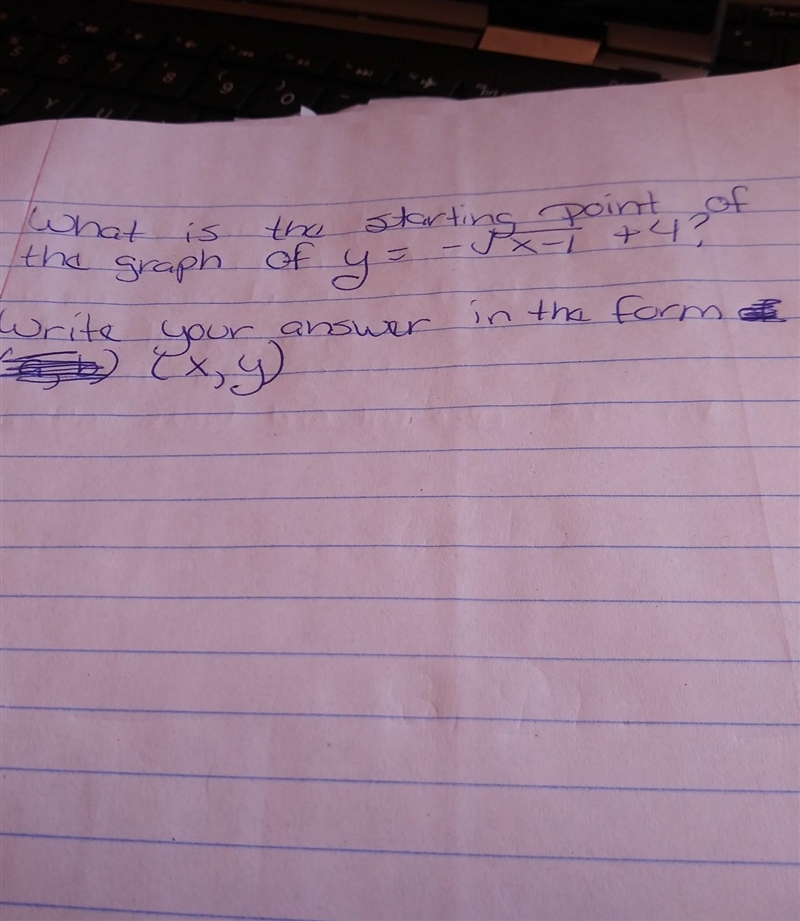 What is the starting point of
the graph of y = -√x-1 + 4?
Write your answer in the form
(x, y)